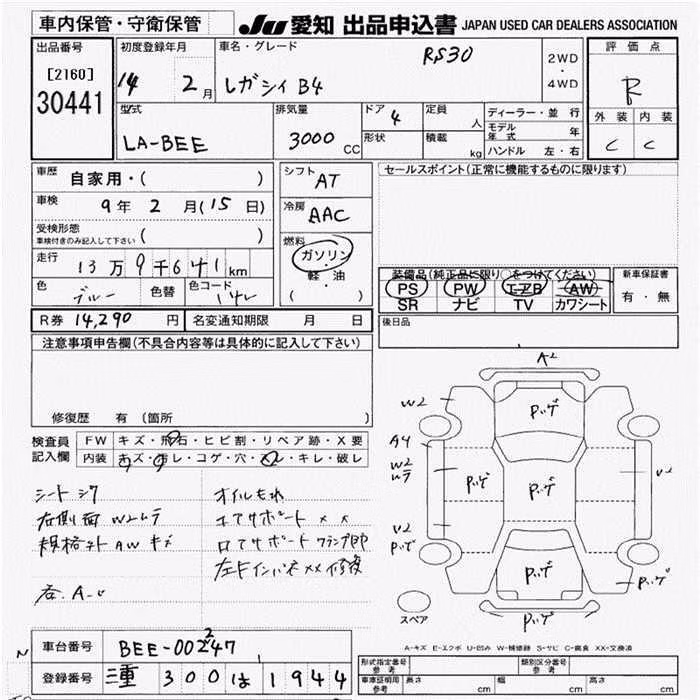 車内保管・守衛保管
JU 愛知 出品申込書 JAPAN USED CAR DEALERS ASSOCIATION
出品番号
[2160]
30441
初度登録年月
14 2月
車名・グレード
レガシィ B4 RS30
2WD
・
4WD
評価点
R
外装 内装
C C
型式
LA-BEE
排気量
3000 CC
ドア 4
形状
定員 人
積載 kg
ディーラー・並行
モデル年式 年
ハンドル 左・右
車歴
自家用・( )
車検
9年 2月(15日)
受検形態
車検付きのみ記入して下さい ( )
走行
13万9千641km
色 ブルー 色替 色コード
R券 14,290 円 名変通知期限 月 日
シフト AT
冷房 AAC
燃料
ガソリン
・
軽・油
( )
セールスポイント(正常に機能するものに限ります)
装備品(純正品に限り○をつけてください)
PS PW エアB AW
SR ナビ TV カワシート
新車保証書
有・無
後日品
注意事項申告欄(不具合内容等は具体的に記入して下さい)
修復歴 有 (箇所
検査員記入欄
FW キズ・飛石・ヒビ割・リペア跡・X要
内装 キズ・汚レ・コゲ・穴・スレ・キレ・破レ
シート シワ
右側面 W2ムラ
規格外 AW キズ
オイルもれ
コアサポート XX
ロアサポート クランプ跡
左Fインパネ XX 修復
A2
W2
Pッゲ
A4
W2
ムラ
Pッゲ
Pッゲ
V2
V2
Pッゲ
Pッゲ
Pッゲ
Pッゲ
スペア
A-キズ E-エクボ U-凹み W-補修跡 S-サビ C-腐食 XX-交換済
車台番号 BEE-002247
登録番号 三重 300 は 1944
型式指定番号 参考
類別区分番号 参考
車庫証明用 参考 長さ cm 幅 cm 高さ cm